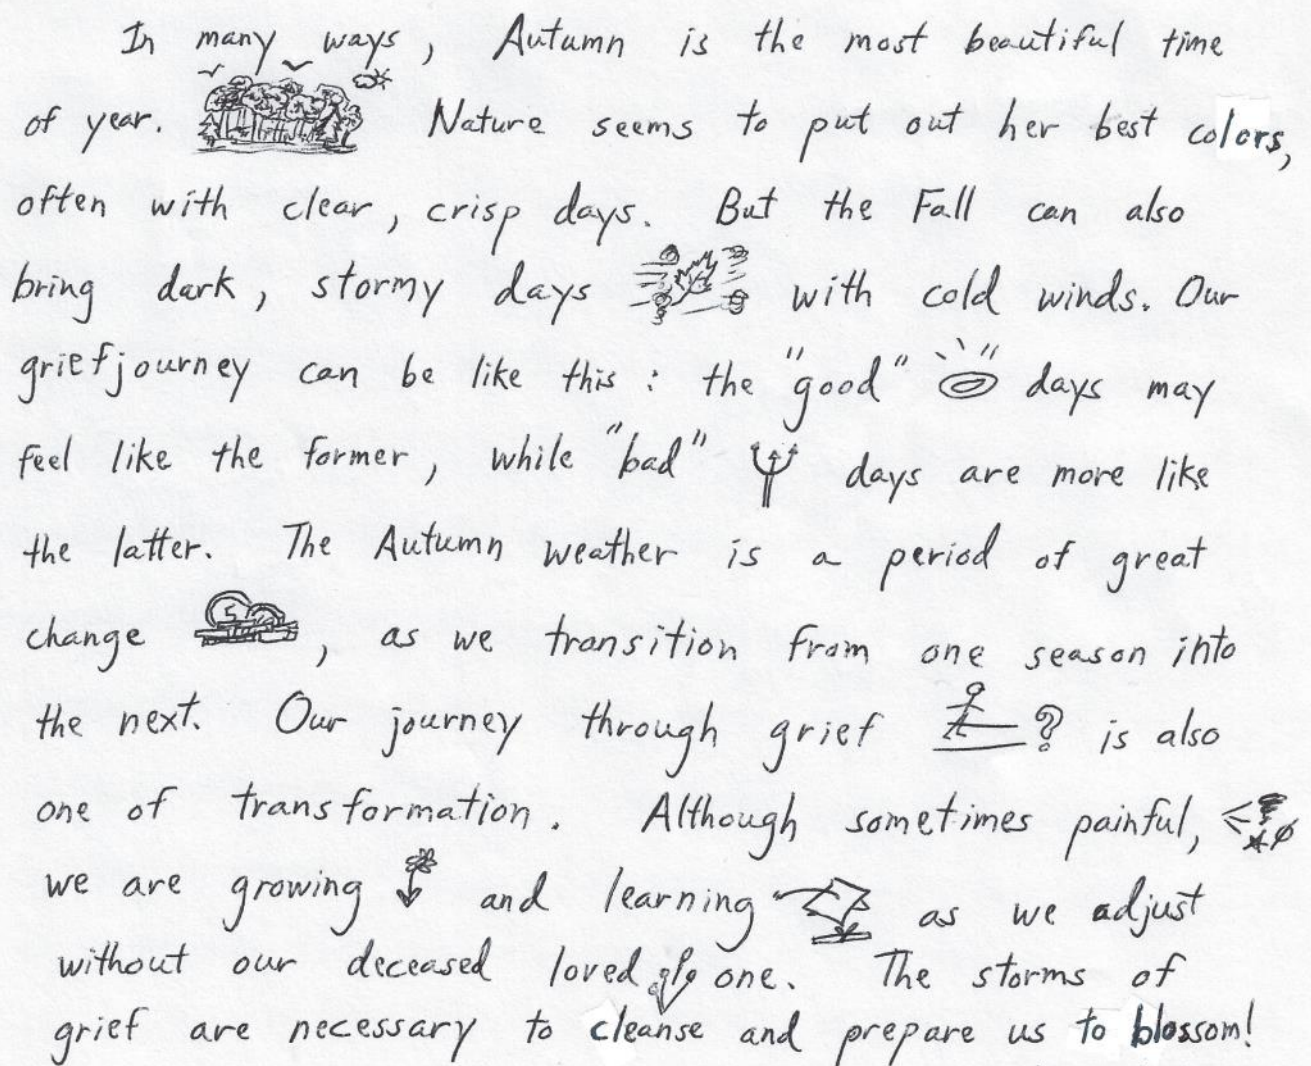 In many ways, Autumn is the most beautiful time
of year. Nature seems to put out her best colors,
often with clear, crisp days. But the Fall can also
bring dark, stormy days with cold winds. Our
grief journey can be like this: the "good" days may
feel like the former, while "bad" days are more like
the latter. The Autumn weather is a period of great
change, as we transition from one season into
the next. Our journey through grief ? is also
one of transformation. Although sometimes painful,
we are growing and learning as we adjust
without our deceased loved one. The storms of
grief are necessary to cleanse and prepare us to blossom!